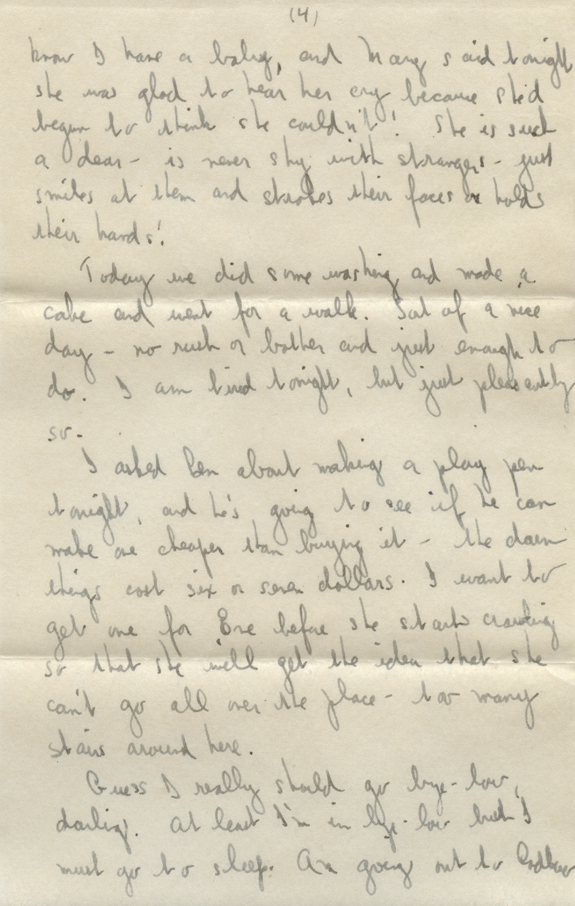 (4)
know I have a baby, and Mary said tonight
she was glad to hear her cry because she'd
begun to think she couldn't! She is such
a dear - is never shy with strangers - just
smiles at them and strokes their faces or holds
their hands!
Today we did some washing and made a
cake and went for a walk. Sort of a nice
day - no rush or bother and just enough to
do. I am tired tonight, but just pleasantly
so.
I asked Ben about making a play pen
tonight, and he's going to see if he can
make one cheaper than buying it - the darn
things cost six or seven dollars. I want to
get one for Eve before she starts crawling
so that she will get the idea that she
can't go all over the place - too many
stairs around here.
Guess I really should go bye-low,
darling. At least I'm in bye-low but I
must go to sleep. Am going out to